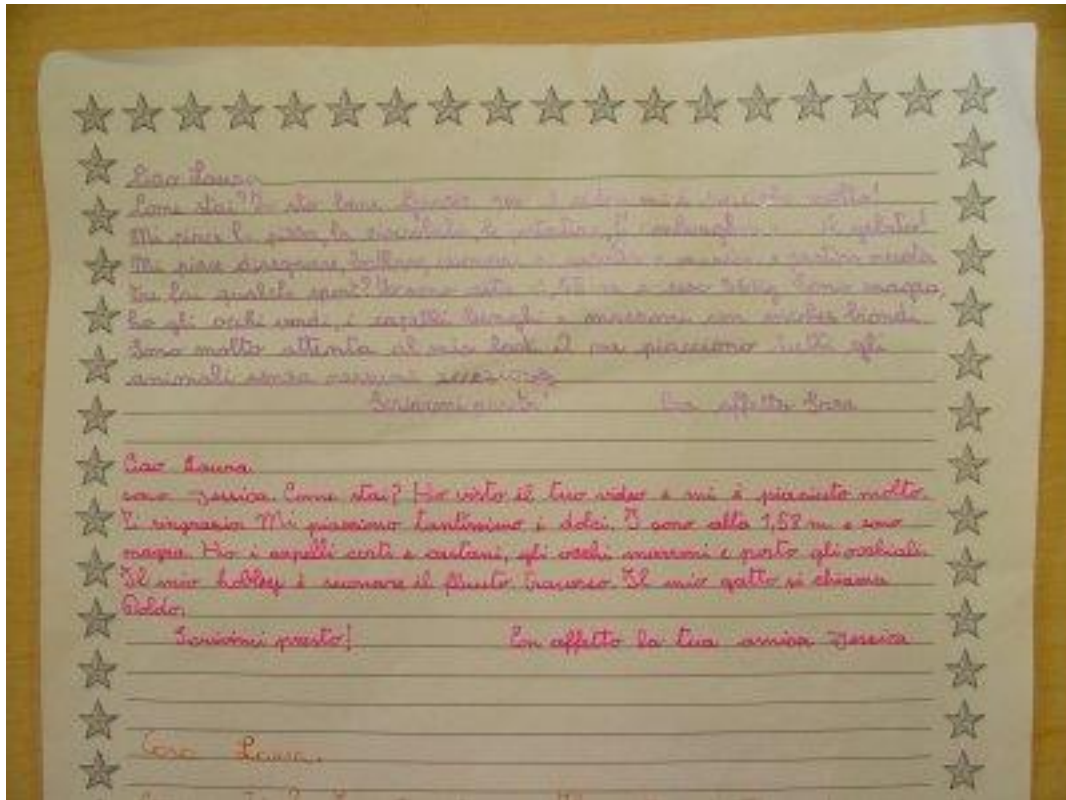 Ciao Laura
Come stai? Io sto bene. Grazie per il video mi è piaciuto molto!
Mi piace la pizza, la cioccolata, le patatine, l' hamburgher e il gelato!
Mi piace disegnare, ballare, suonare, musica
Tu fai qualche sport? Io sono alta 1,55 m e peso Sono magra,
ho gli occhi verdi, i capelli lunghi e marroni con bionde.
Sono molto attenta al mio look. A me piacciono tutti gli
animali senza nessuna eccezione
Scrivimi presto! Con affetto Sara
Ciao Laura
sono Jessica. Come stai? Ho visto il tuo video e mi è piaciuto molto.
Ti ringrazio. Mi piacciono tantissimo i dolci. I sono alta 1,58 m e sono
magra. Ho i capelli corti e castani, gli occhi marroni e porto gli occhiali.
Il mio hobbey è suonare il flauto traverso. Il mio gatto si chiama
Poldo.
Scrivimi presto! Con affetto la tua amica Jessica
Cara Laura,